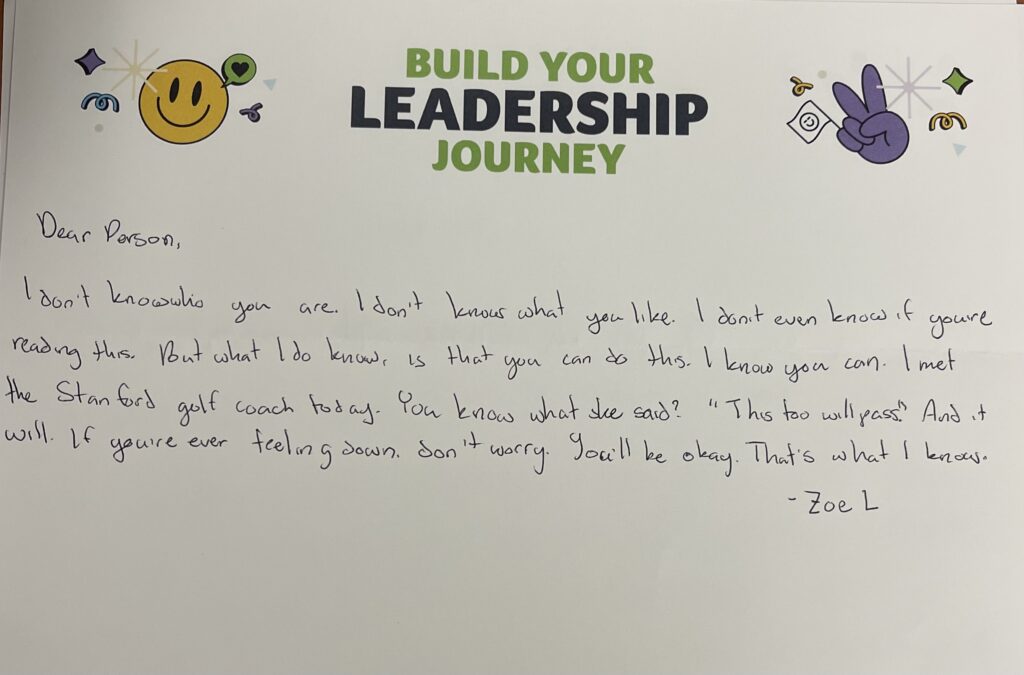 BUILD YOUR
LEADERSHIP
JOURNEY
Dear Person,
I don't know who you are. I don't know what you like. I don't even know if you're
reading this. But what I do know, is that you can do this. I know you can. I met
the Stanford golf coach today. You know what she said? "This too will pass." And it
will. If you're ever feeling down, don't worry. You'll be okay. That's what I know.
- Zoe L